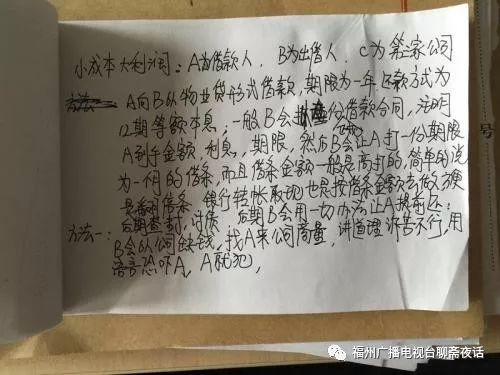 小成本大利润：A为借款人， B为出借人， C为 公司
A向B以物业贷形式借款，期限为一年还款方式为
12期等额本息，一般B会 份借款合同，注明
A到手金额 利息，期限，然后B会让A打一份期限
为一个月的借条，而且借条金额一般是高打的，简单的说
是 借条，银行转账取现也是按借条金额去做 硬
后期 ，讨债 后期B会用一切办法让A提前还：
方法一：B会以公司缺钱，找A来公司商量，讲道理 诉苦不行，用
语言恐吓A，A就犯，
号
福州广播电视台聊斋夜话